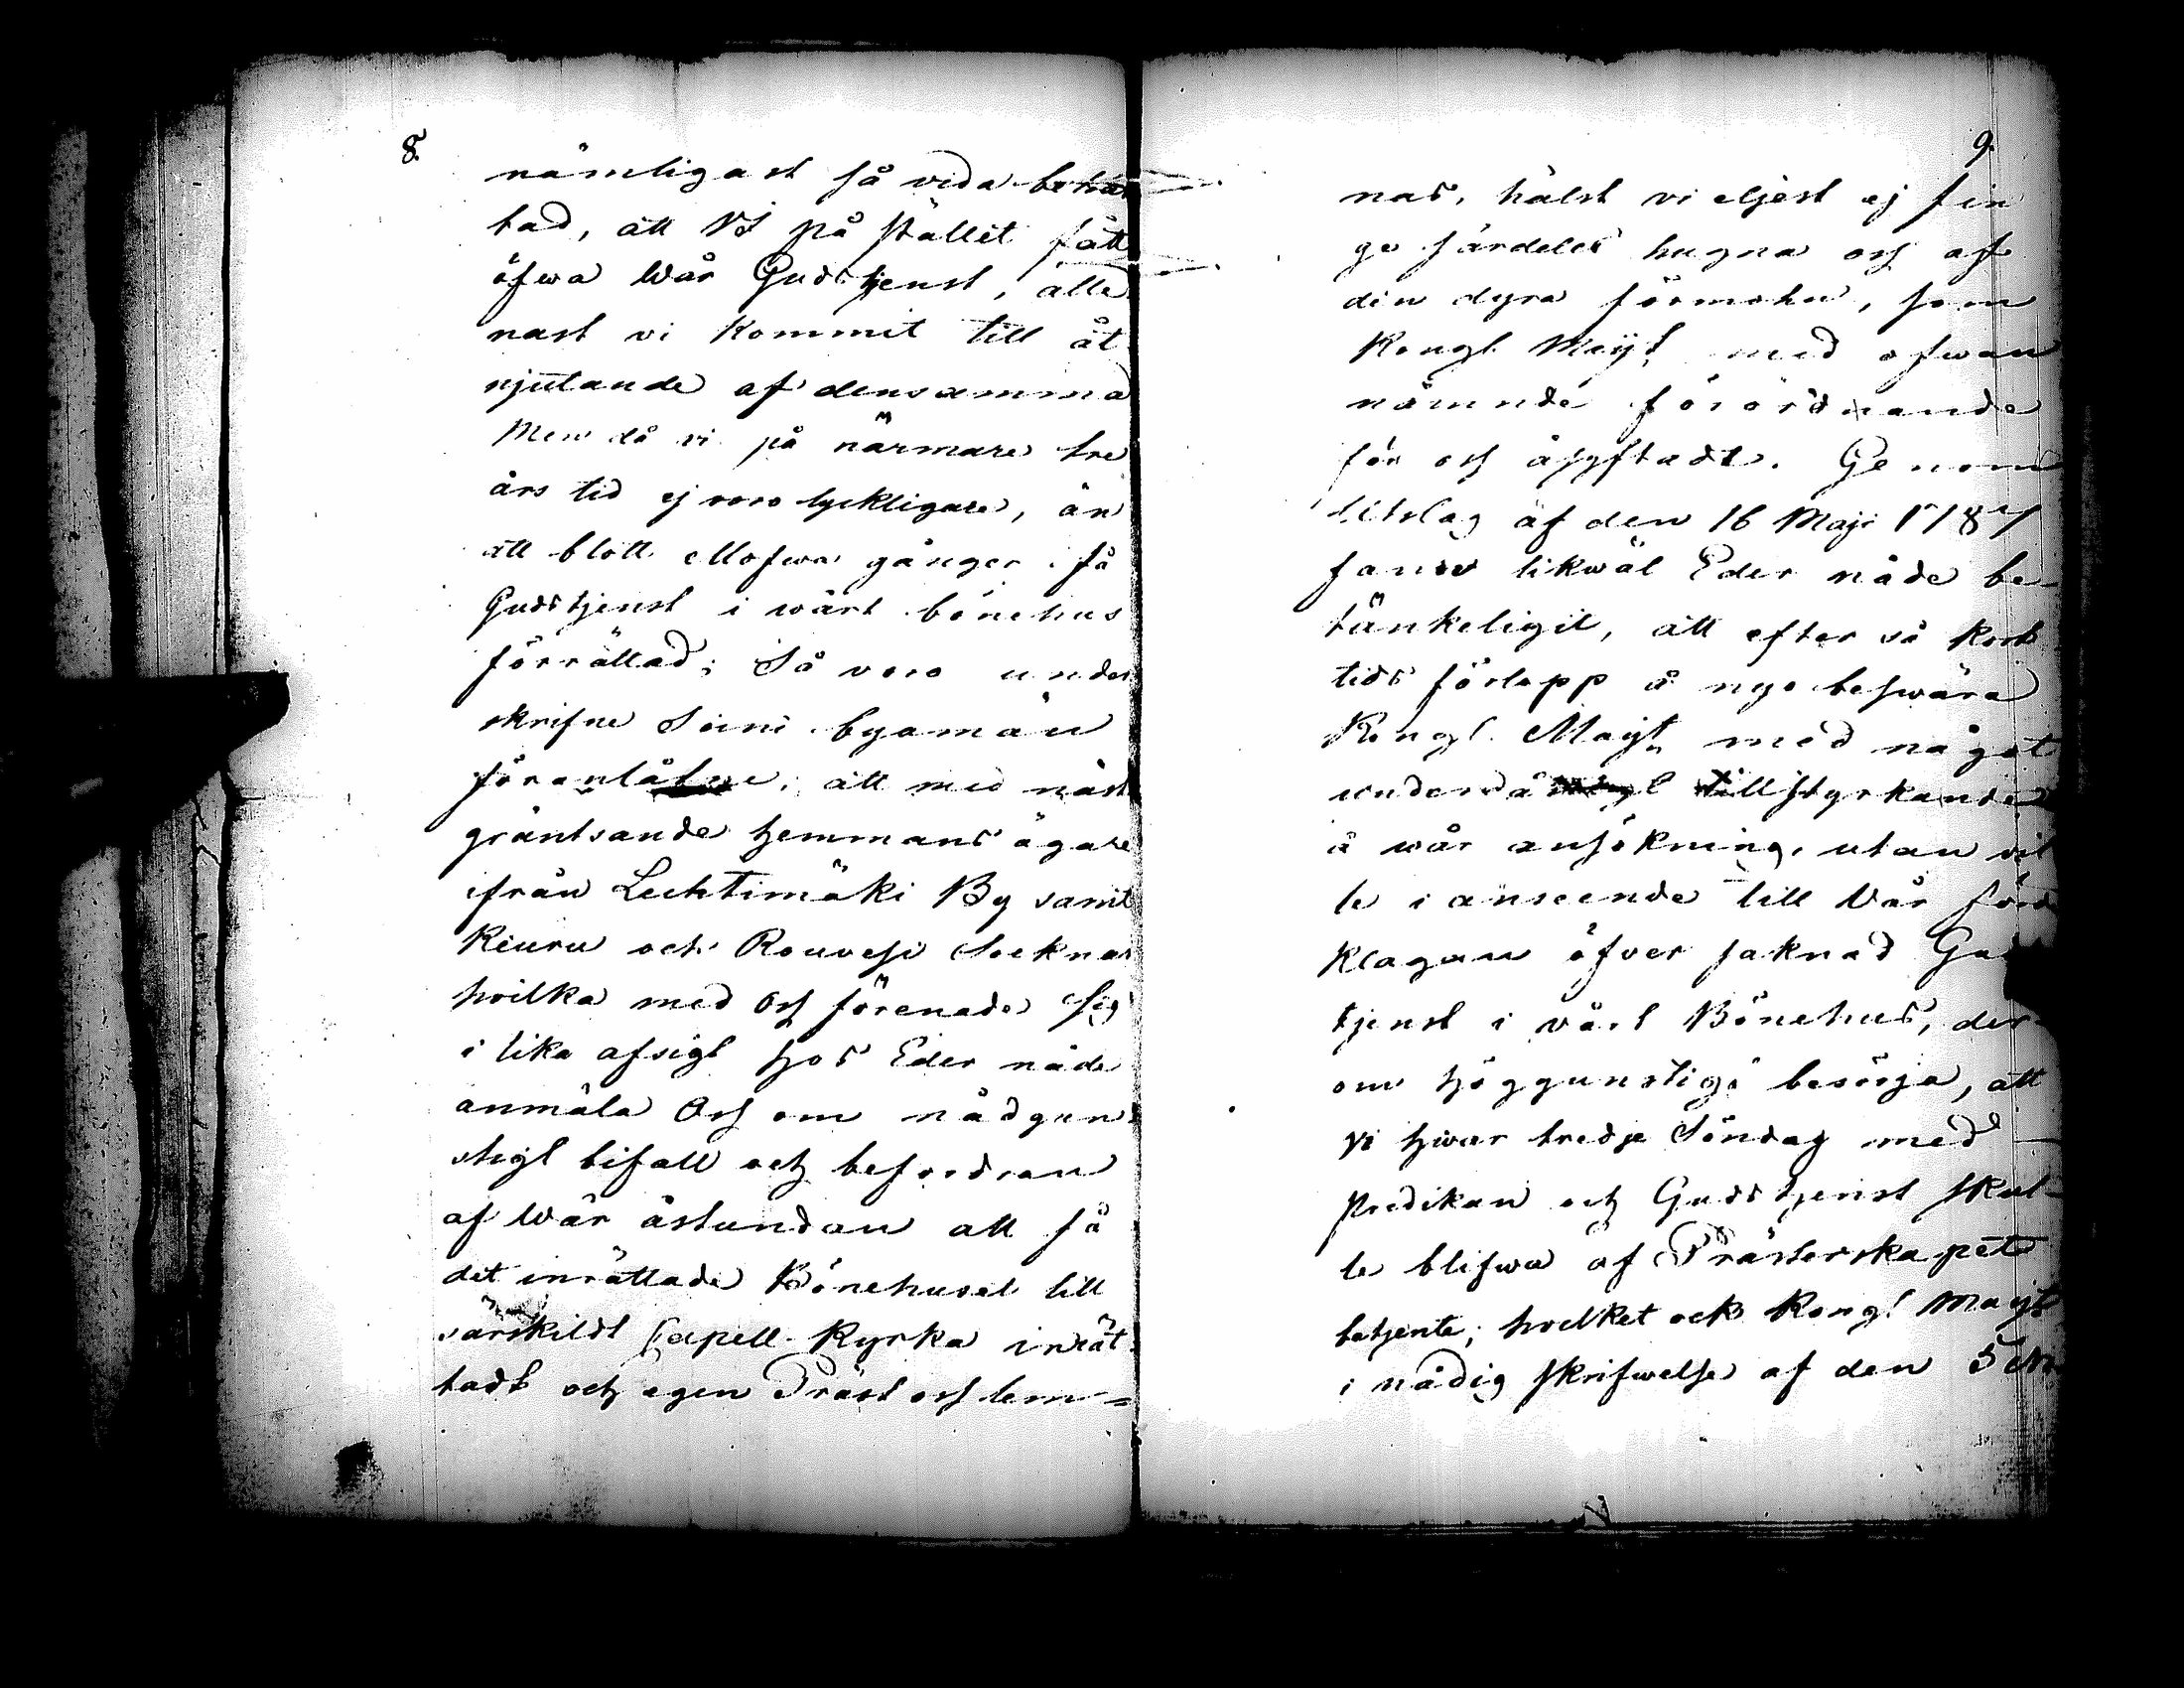 8.
nämligast så vida
tad, att Vi på stället fått
öfwa Wår Gudstjenst, alle
nast vi Kommit till åt
njutande af densamma
Men då vi på närmare tre
års tid ej voro lyckligare, än
att blott ellofwa gånger få
Gudstjenst i wårt bönehus
förrättad; Så voro under
skrifne Soini byamän
föranlåtne, att med näst
gräntsande hemmans ägare
ifrån Lechtimäki By samt
Keuru och Rouvesi Soknar
hvilka med Oss förenade Sig
i lika afsigt hos Eder nåde
anmäla Oss om nådgun
stigt bifall och befordran
af Wår åstundan att få
det inrättade Bönehuset till
särskildt Capell-Kyrka inrät
tadt och egen Präst oss lem=
9.
nas, hälst vi eljest ej fin
ge särdeles hugna oss af
din dyra förmohn, som
Kongl. Mayt med ofwan
nämnde förordnande
för oss åsyftadt. Genom
Utslag af den 16 Maji 1787
fann likwäl Eder nåde be-
tänkeligit, att efter så kort
tids förlopp å nyo beswära
Kongl. Mayt med något
tillstyrkande
å wår ansökning, utan vil
le i anseende till Vår förd
Klagan öfver saknad Gud
tjenst i vårt Bönehus, der-
om höggunstigt besörja, att
Vi hwar tredje Söndag med
Predikan och Gudstjenst skul-
le blifwa af Prästerskapet
betjente; hvilket ock Kongl Mayt
i nådig skrifwelse af den 5